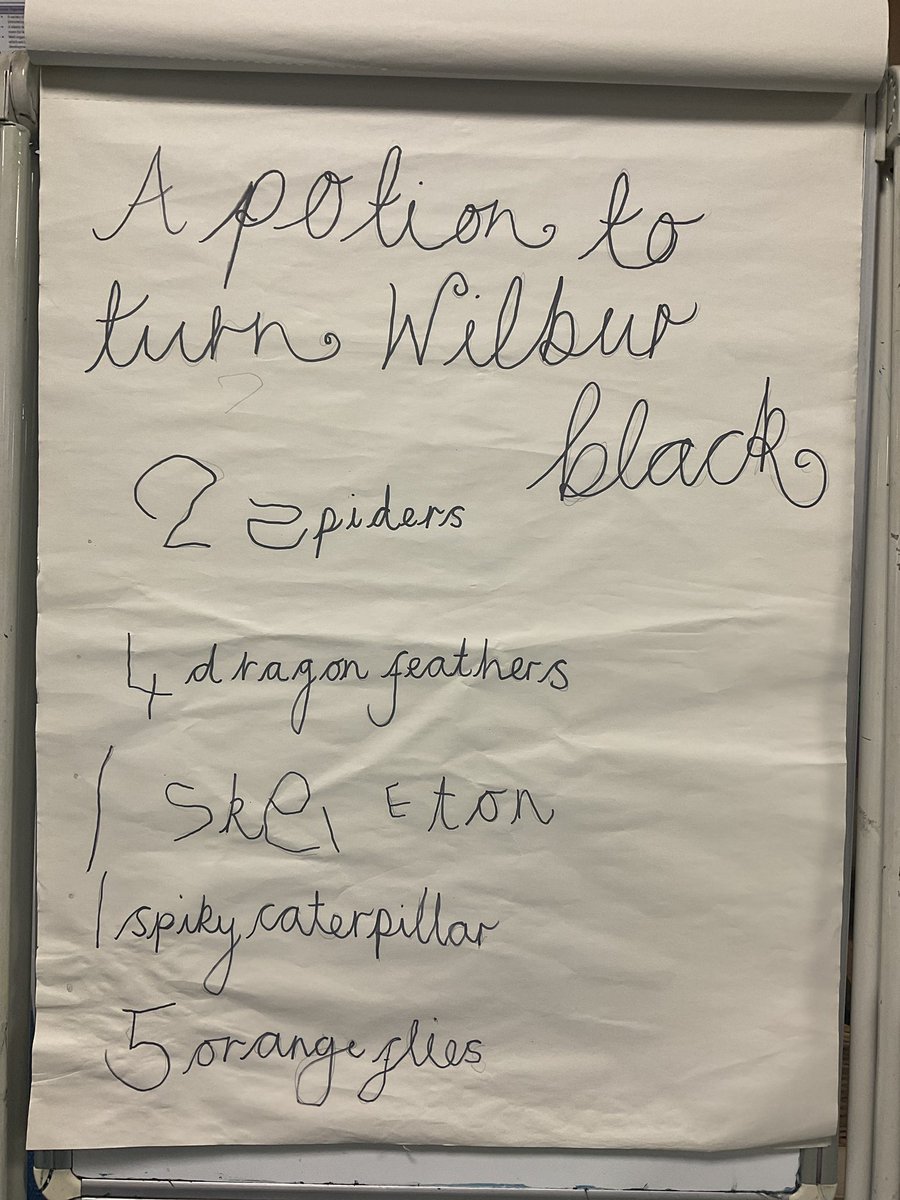 A potion to
turn Wilbur
black
2 spiders
4 dragon feathers
1 skelEton
1 spiky caterpillar
5 orange flies